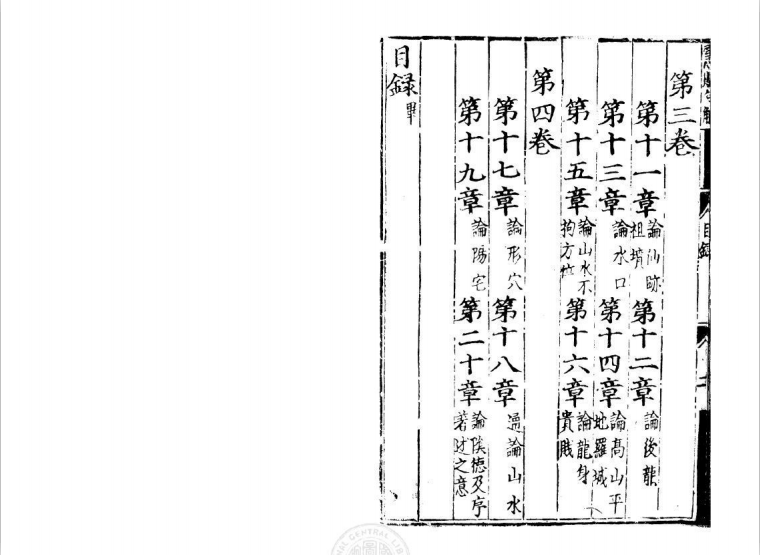 第三卷
第十一章 論仙跡祖墳 第十二章 論後龍
第十三章 論水口 第十四章 論高山平地羅城
第十五章 論山水不拘方位 第十六章 論龍身貴賤
第四卷
第十七章 論形穴 第十八章 通論山水
第十九章 論陽宅 第二十章 論陰德及序著述之意
目録畢
目録